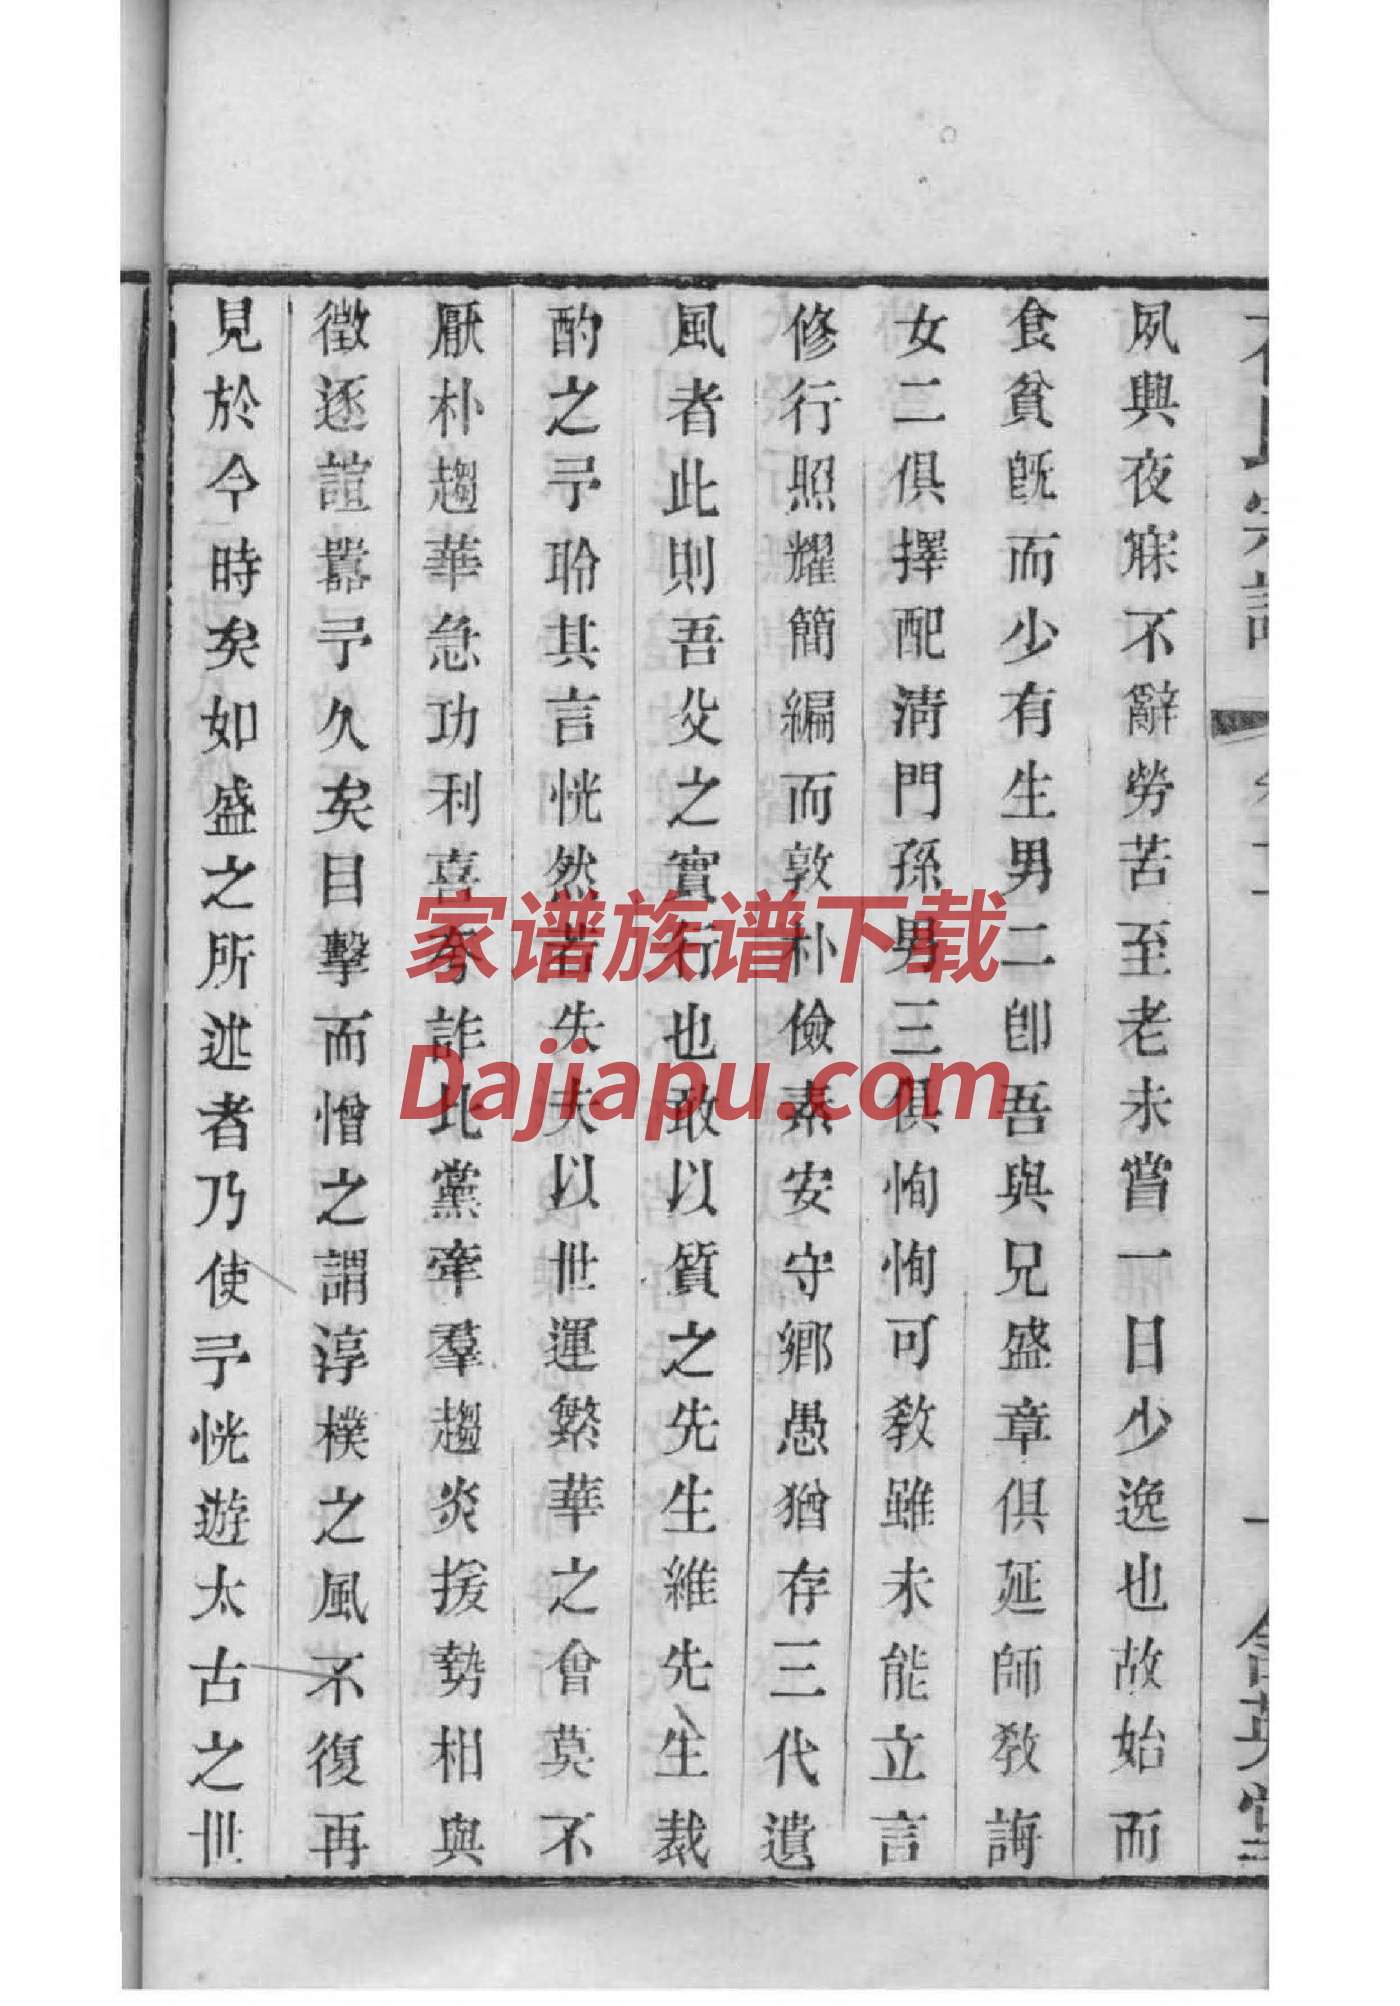 夙興夜寐不辭勞苦至老未嘗一日少逸也故始而
食貧旣而少有生男二卽吾與兄盛章俱延師敎誨
女二俱擇配淸門孫男三俱恂恂可敎雖未能立言
修行照耀簡編而敦朴儉素安守鄉愚猶存三代遺
風者此則吾父之實行也敢以質之先生維先生裁
酌之予聆其言恍然若失夫以世運繁華之會莫不
厭朴趨華急功利喜夸詐比黨牽羣趨炎援勢相與
徵逐諠囂予久矣目擊而憎之謂淳樸之風不復再
見於今時矣如盛之所述者乃使予恍遊太古之世
家谱族谱下载
Dajiapu.com